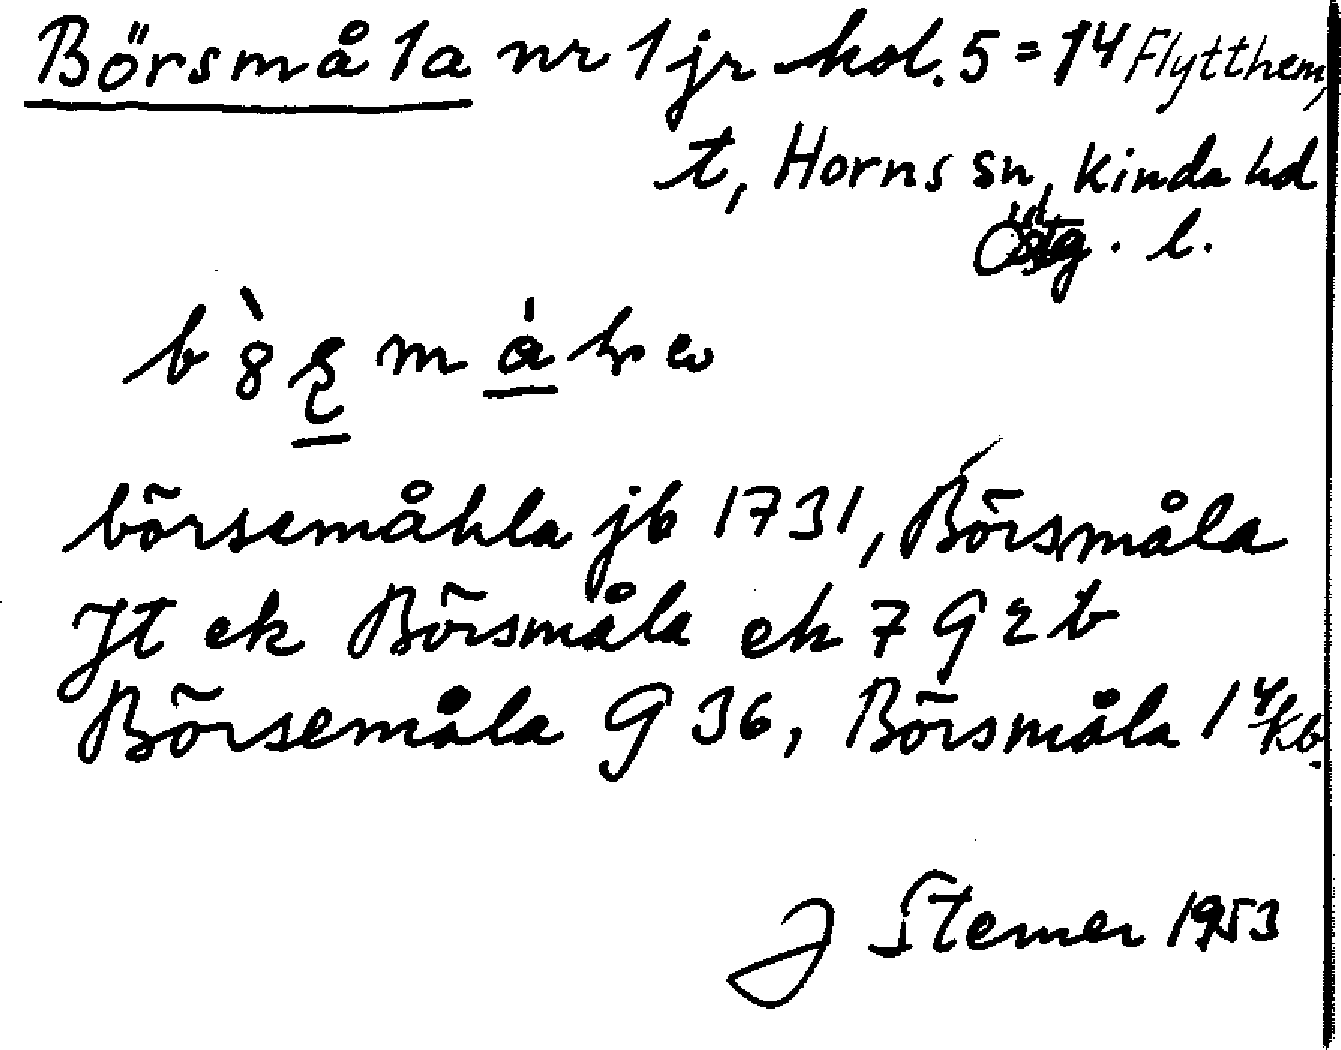 Börsmåla nr 1 jr kol. 5 = 14 Flytthem,
t, Horns sn, Kinda hd
Östg. l.
börsemåhla jb 1731, Börsmåla
Jt ek Börsmåla eh 7 9 2 b
Börsemåla 9 36, Börsmåla 1 4/kb
J Stemer 1953